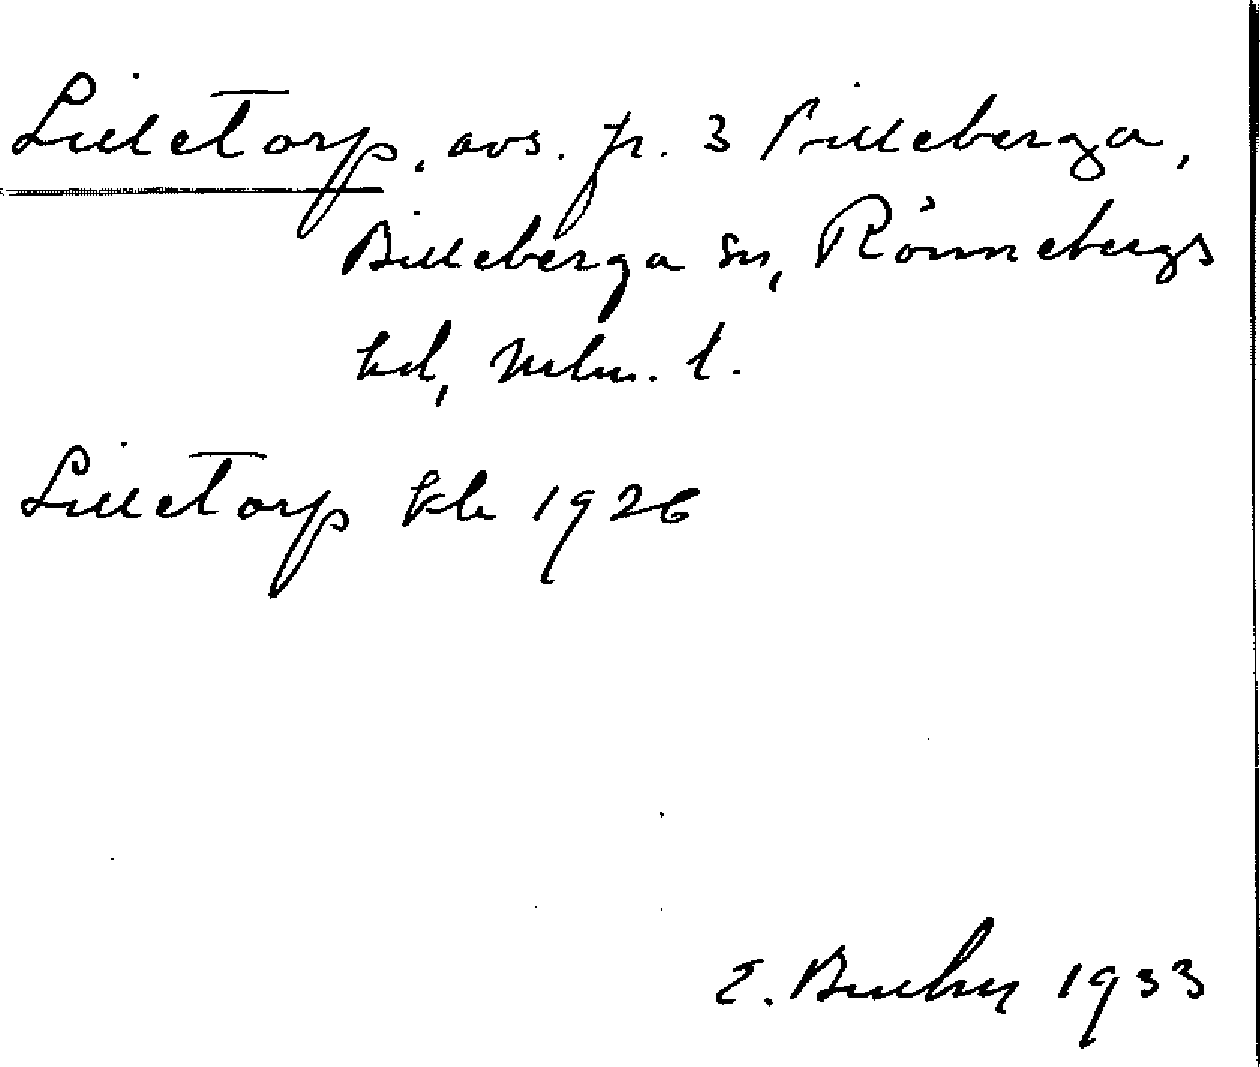 Lilletorp, avs. fr. 3 Pilleberga,
Billeberga sn, Rönnebergs
hd, Mlm. l.
Lilletorp kb 1926
E. 1933